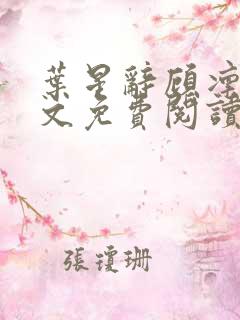 葉星辭顧涼
文免費閱讀
張瓊珊